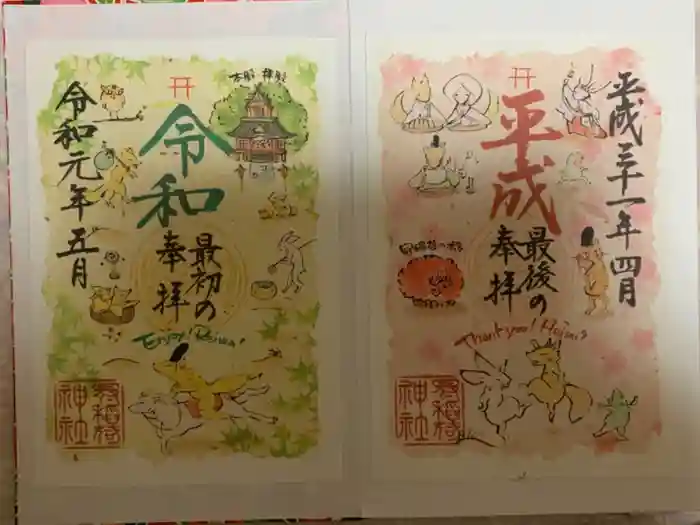 平成三十一年四月
平成
最後の
奉拝
Thank you! Heisei
神社
令和
最初の
奉拝
本殿 拝殿
Enjoy! Reiwa!
令和元年五月
神社